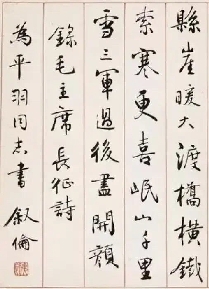 縣崖暖大渡橋橫鐵
索寒更喜岷山千里
雪三軍過後盡開顏
錄毛主席長征詩
為平羽同志書 叙倫